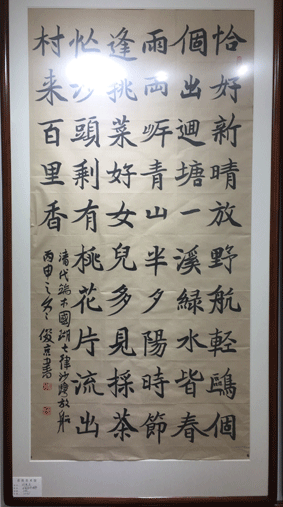 恰好新晴放野航輕鷗個
個出迴塘一溪綠水皆春
雨兩岸青山半夕陽時節
逢挑菜好女兒多見採茶
忙沙頭剩有桃花片流出
村来百里香
清代端木國瑚七律沙灣放船
丙申之冬俊京書